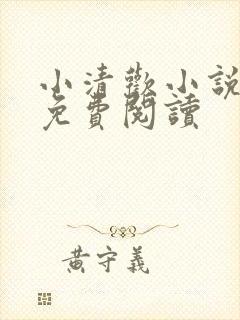 小清歡小說
免費閱讀
黃守義